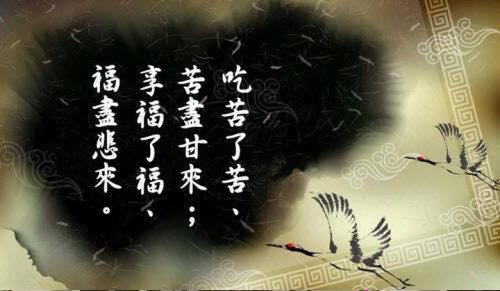 吃苦了苦、
苦盡甘來；
享福了福、
福盡悲來。